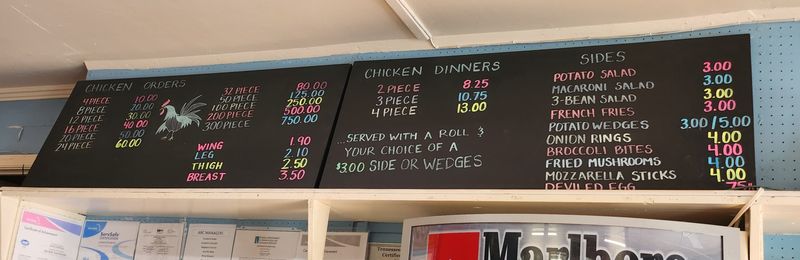 CHICKEN ORDERS
4 PIECE 10.00
8 PIECE 20.00
12 PIECE 30.00
16 PIECE 40.00
20 PIECE 50.00
24 PIECE 60.00
32 PIECE 80.00
50 PIECE 125.00
100 PIECE 250.00
200 PIECE 500.00
300 PIECE 750.00
WING 1.90
LEG 2.10
THIGH 2.50
BREAST 3.50
CHICKEN DINNERS
2 PIECE 8.25
3 PIECE 10.75
4 PIECE 13.00
...SERVED WITH A ROLL &
YOUR CHOICE OF A
$3.00 SIDE OR WEDGES
SIDES
POTATO SALAD 3.00
MACARONI SALAD 3.00
3-BEAN SALAD 3.00
FRENCH FRIES 3.00
POTATO WEDGES 3.00/5.00
ONION RINGS 4.00
BROCCOLI BITES 4.00
FRIED MUSHROOMS 4.00
MOZZARELLA STICKS 4.00
DEVILED EGG .75
ServSafe
ABC MANAGERS
Marlboro